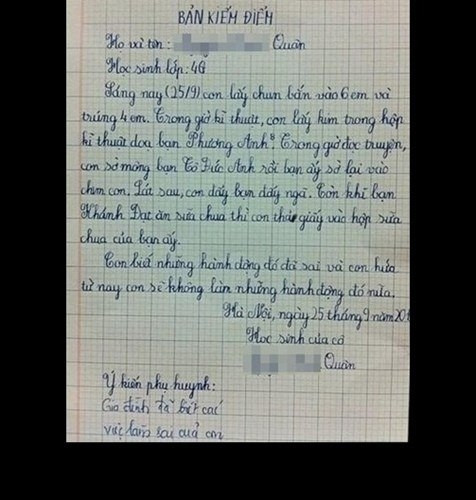 BẢN KIỂM ĐIỂM
Họ và tên: Quân
Học sinh lớp: 4G
Sáng nay (25/9) con lấy chun bắn vào 6 em và
trúng 4 em. Trong giờ kĩ thuật, con lấy kim trong hộp
kĩ thuật dọa bạn Phương Anh. Trong giờ đọc truyện,
con sờ mông bạn Tô Đức Anh rồi bạn ấy sờ lại vào
chim con. Lát sau, con đẩy bạn đấy ngã. Còn khi bạn
Khánh Đạt ăn sữa chua thì con thả giấy vào hộp sữa
chua của bạn ấy.
Con biết những hành động đó đã sai và con hứa
từ nay con sẽ không làm những hành động đó nữa.
Hà Nội, ngày 25 tháng 9 năm 201
Học sinh của cô
Quân
Ý kiến phụ huynh:
Gia đình đã biết cái
việc làm sai của con